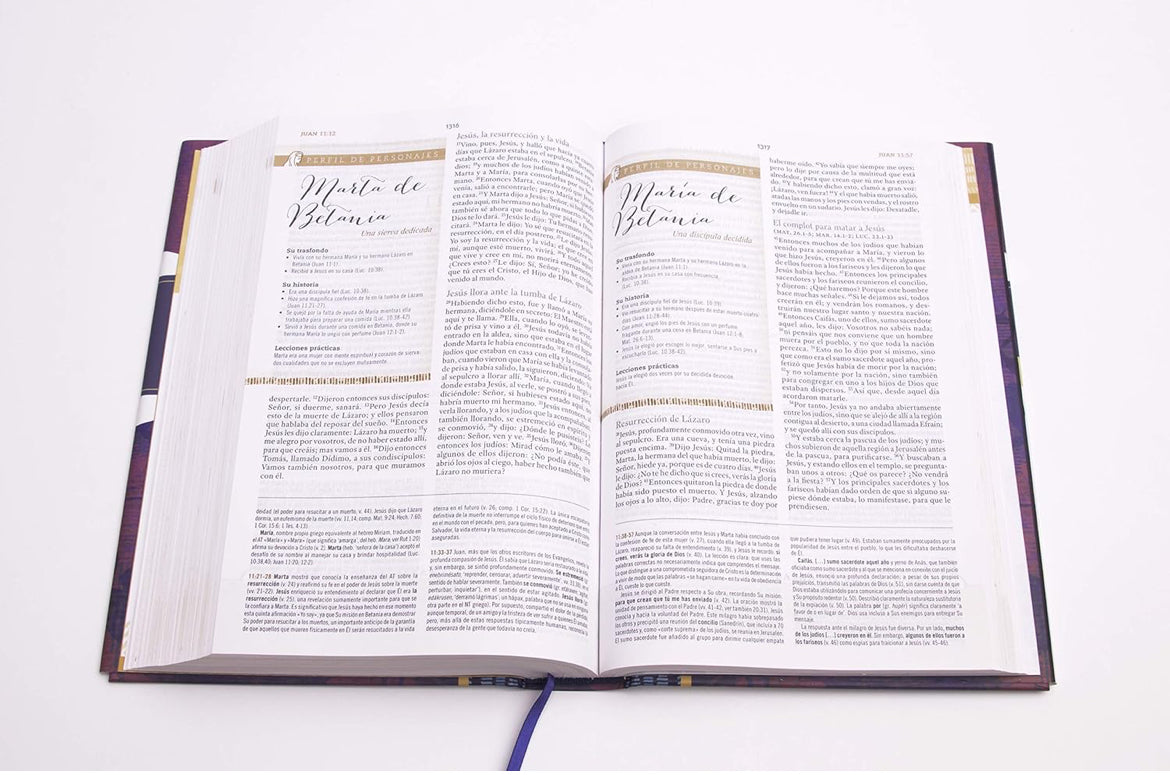 JUAN 11:12
1316
PERFIL DE PERSONAJES
Marta de
Betania
Una sierva dedicada
Su trasfondo
• Vivía con su hermana María y su hermano Lázaro en
Betania (Juan 11:1).
• Recibió a Jesús en su casa (Luc. 10:38).
Su historia
• Era una discípula fiel (Luc. 10:38).
• Hizo una magnífica confesión de fe en la tumba de Lázaro
(Juan 11:21-27).
• Se quejó por la falta de ayuda de María mientras ella
trabajaba para preparar una comida (Luc. 10:38-42).
• Sirvió a Jesús durante una comida en Betania, donde su
hermana María lo ungió con perfume (Juan 12:1-8).
Lecciones prácticas
Marta era una mujer con mente espiritual y corazón de sierva:
dos cualidades que no se excluyen mutuamente.
despertarle. ¹²Dijeron entonces sus discípulos:
Señor, si duerme, sanará. ¹³Pero Jesús decía
esto de la muerte de Lázaro; y ellos pensaron
que hablaba del reposar del sueño. ¹⁴Entonces
Jesús les dijo claramente: Lázaro ha muerto; ¹⁵y
me alegro por vosotros, de no haber estado allí,
para que creáis; mas vamos a él. ¹⁶Dijo entonces
Tomás, llamado Dídimo, a sus condiscípulos:
Vamos también nosotros, para que muramos
con él.
Jesús, la resurrección y la vida
¹⁷Vino, pues, Jesús, y halló que hacía ya cuatro
días que Lázaro estaba en el sepulcro.
estaba cerca de Jerusalén, como a
y muchos de los judíos habían
a Marta y a María, para consolarlas por su
hermano. ²⁰Entonces Marta, cuando oyó que Jesús
venía, salió a encontrarle; pero María se quedó
en casa. ²¹Y Marta dijo a Jesús: Señor, si hubieses
estado aquí, mi hermano no habría muerto.
también sé ahora que todo lo que pidas a Dios,
Dios te lo dará. ²³Jesús le dijo: Tu hermano resu-
citará. ²⁴Marta le dijo: Yo sé que resucitará en la
resurrección, en el día postrero. ²⁵Le dijo Jesús:
Yo soy la resurrección y la vida; el que cree en
mí, aunque esté muerto, vivirá. ²⁶Y todo aquel
que vive y cree en mí, no morirá eternamente.
¿Crees esto? ²⁷Le dijo: Sí, Señor; yo he creído
que tú eres el Cristo, el Hijo de Dios, que has
venido al mundo.
Jesús llora ante la tumba de Lázaro
²⁸Habiendo dicho esto, fue y llamó a María su
hermana, diciéndole en secreto: El Maestro está
aquí y te llama. ²⁹Ella, cuando lo oyó, se levantó
de prisa y vino a él. ³⁰Jesús todavía no había
entrado en la aldea, sino que estaba en el lugar
donde Marta le había encontrado. ³¹Entonces los
judíos que estaban en casa con ella y la consola-
ban, cuando vieron que María se había levantado
de prisa y había salido, la siguieron, diciendo: Va
al sepulcro a llorar allí. ³²María, cuando llegó a
donde estaba Jesús, al verle, se postró a sus pies,
diciéndole: Señor, si hubieses estado aquí, no
habría muerto mi hermano. ³³Jesús entonces, al
verla llorando, y a los judíos que la acompañaban,
también llorando, se estremeció en espíritu y
se conmovió, ³⁴y dijo: ¿Dónde le pusisteis? Le
dijeron: Señor, ven y ve. ³⁵Jesús lloró. ³⁶Dijeron
entonces los judíos: Mirad cómo le amaba. ³⁷Y
algunos de ellos dijeron: ¿No podía éste, que
abrió los ojos al ciego, haber hecho también que
Lázaro no muriera?
deidad (el poder para resucitar a un muerto, v. 44). Jesús dijo que Lázaro
dormía, un eufemismo de la muerte (vv. 11, 14; comp. Mat. 9:24; Hech. 7:60;
1 Cor. 15:6; 1 Tes. 4:13).
María, nombre propio griego equivalente al hebreo Miriam, traducido en
el AT «María» y «Mara» (que significa 'amarga', del heb. Mara; ver Rut 1:20)
afirma su devoción a Cristo (v. 2). Marta (heb. 'señora de la casa') aceptó el
desafío de su nombre al manejar su casa y brindar hospitalidad (Luc.
10:38,40; Juan 11:20; 12:2).
11:21-28 Marta mostró que conocía la enseñanza del AT sobre la
resurrección (v. 24) y reafirmó su fe en el poder de Jesús sobre la muerte
(vv. 21-22). Jesús enriqueció su entendimiento al declarar que Él era la
resurrección (v. 25), una revelación sumamente importante para que se
la confiara a Marta. Es significativo que Jesús haya hecho en ese momento
esta culminante afirmación «Yo soy», ya que Su misión en Betania era demostrar
Su poder para resucitar a los muertos, un importante anticipo de la garantía
de que aquellos que mueren físicamente en Él serán resucitados a la vida
eterna en el futuro (v. 26, comp. 1 Cor. 15-22). La única
definitiva de la muerte no interrumpe el ciclo físico de
en el mundo con el pecado, pero, para quienes han aceptado a Cristo
Salvador, la vida eterna y la resurrección del cuerpo para
aseguradas.
11:33-37 Juan, más que los otros escritores de los Evangelios,
y, sin embargo, se sintió profundamente conmovido. Se estremeció
desgracia eterna de quienes
1317
JUAN 11:57
PERFIL DE PERSONAJES
María de
Betania
Una discípula decidida
Su trasfondo
• Vivía con su hermana Marta y su hermano Lázaro en la
aldea de Betania (Juan 11:1).
• Recibía a Jesús en su casa con frecuencia
(Luc. 10:38).
Su historia
• Era una discípula fiel de Jesús (Luc. 10:39).
• Vio resucitar a su hermano después de estar muerto cuatro
días (Juan 11:28-44).
• Con amor, ungió los pies de Jesús con un perfume
fragante durante una cena en Betania (Juan 12:1-8,
Mat. 26:6-13).
• Jesús la elogió por escoger lo mejor, sentarse a Sus pies y
escucharlo (Luc. 10:38-42).
Lecciones prácticas
Jesús la elogió dos veces por su decidida devoción
hacia Él.
Resurrección de Lázaro
³⁸Jesús, profundamente conmovido otra vez, vino
al sepulcro. Era una cueva, y tenía una piedra
puesta encima. ³⁹Dijo Jesús: Quitad la piedra.
Marta, la hermana del que había muerto, le dijo:
Señor, hiede ya, porque es de cuatro días. ⁴⁰Jesús
le dijo: ¿No te he dicho que si crees, verás la gloria
de Dios? ⁴¹Entonces quitaron la piedra de donde
había sido puesto el muerto. Y Jesús, alzando
los ojos a lo alto, dijo: Padre, gracias te doy por
haberme oído. ⁴²Yo sabía que siempre me oyes;
pero lo dije por causa de la multitud que está
alrededor, para que crean que tú me has envia-
do. ⁴³Y habiendo dicho esto, clamó a gran voz:
¡Lázaro, ven fuera! ⁴⁴Y el que había muerto salió,
atadas las manos y los pies con vendas, y el rostro
envuelto en un sudario. Jesús les dijo: Desatadle,
y dejadle ir.
El complot para matar a Jesús
(MAT. 26.1-5; MAR. 14.1-2; LUC. 22.1-2)
⁴⁵Entonces muchos de los judíos que habían
venido para acompañar a María, y vieron lo
que hizo Jesús, creyeron en él. ⁴⁶Pero algunos
de ellos fueron a los fariseos y les dijeron lo que
Jesús había hecho. ⁴⁷Entonces los principales
sacerdotes y los fariseos reunieron el concilio,
y dijeron: ¿Qué haremos? Porque este hombre
hace muchas señales. ⁴⁸Si le dejamos así, todos
creerán en él; y vendrán los romanos, y des-
truirán nuestro lugar santo y nuestra nación.
⁴⁹Entonces Caifás, uno de ellos, sumo sacerdote
aquel año, les dijo: Vosotros no sabéis nada;
⁵⁰ni pensáis que nos conviene que un hombre
muera por el pueblo, y no que toda la nación
perezca. ⁵¹Esto no lo dijo por sí mismo, sino
que como era el sumo sacerdote aquel año, pro-
fetizó que Jesús había de morir por la nación;
⁵²y no solamente por la nación, sino también
para congregar en uno a los hijos de Dios que
estaban dispersos. ⁵³Así que, desde aquel día
acordaron matarle.
⁵⁴Por tanto, Jesús ya no andaba abiertamente
entre los judíos, sino que se alejó de allí a la región
contigua al desierto, a una ciudad llamada Efraín;
y se quedó allí con sus discípulos.
⁵⁵Y estaba cerca la pascua de los judíos; y mu-
chos subieron de aquella región a Jerusalén antes
de la pascua, para purificarse. ⁵⁶Y buscaban a
Jesús, y estando ellos en el templo, se pregunta-
ban unos a otros: ¿Qué os parece? ¿No vendrá
a la fiesta? ⁵⁷Y los principales sacerdotes y los
fariseos habían dado orden de que si alguno su-
piese dónde estaba, lo manifestase, para que le
prendiesen.
11:38-57 Aunque la conversación entre Jesús y Marta había concluido con
la confesión de fe de esta mujer (v. 27), cuando ella llegó a la tumba de
Lázaro, reapareció su falta de entendimiento (v. 39), y Jesús le recordó: si
crees, verás la gloria de Dios (v. 40). La lección es clara: que uses las
palabras correctas no necesariamente indica que comprendes el mensaje.
Lo que distingue a una comprometida seguidora de Cristo es la determinación
a vivir de modo que las palabras «se hagan carne» en tu vida de obediencia
a Él, cueste lo que cueste.
Jesús se dirigió al Padre respecto a Su obra, recordando Su misión:
para que crean que tú me has enviado (v. 42). La oración mostró la
unidad de pensamiento con el Padre (vv. 41-42, ver también 20:31). Jesús
conocía y hacía la voluntad del Padre. Este milagro había sobrepasado
los otros y precipitó una reunión del concilio (Sanedrín), que incluía a 70
sacerdotes y, como «corte suprema» de los judíos, se reunía en Jerusalén.
El sumo sacerdote fue añadido al grupo para dirimir cualquier empate
que pudiera tener lugar (v. 49). Estaban sumamente preocupados por la
popularidad de Jesús entre el pueblo, lo que les dificultaba deshacerse
de Él.
Caifás, [...] sumo sacerdote aquel año y yerno de Anás, que también
Dios estaba utilizando para comunicar una profecía concerniente a Jesús
y Su propósito redentor (v. 50). Describió claramente la naturaleza sustitutoria
de la expiación (v. 50). La palabra por (gr. hupér) significa claramente 'a
favor de o en lugar de'. Dios usa incluso a Sus enemigos para entregar Su
mensaje.
La respuesta ante el milagro de Jesús fue diversa. Por un lado, muchos
de los judíos [...] creyeron en él. Sin embargo, algunos de ellos fueron a
los fariseos (v. 46) como espías para traicionar a Jesús (vv. 45-46).